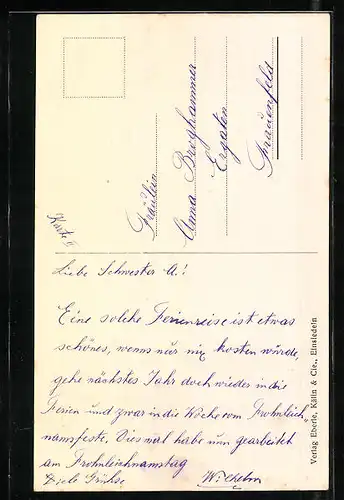 Karte II
Fräulein
Anna Broghammer
Ergaten
Frauenfeld
Liebe Schwester A.!
Eine solche Ferienreise ist etwas
schönes, wenns nur nix kosten würde,
gehe nächstes Jahr doch wieder in die
Ferien und zwar in die Woche vom Frohnleich„
namsfeste. Dies mal habe nun gearbeitet
am Frohnleichnamstag
Viele Grühse
Wilhelm
Verlag Eberle, Kälin & Cie., Einsiedeln